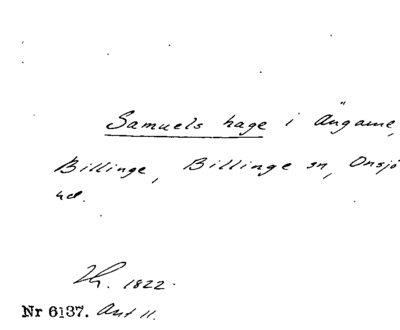 Samuels hage i Ängarne,
Billinge, Billinge sn, Onsjö
hd.
1822.
Nr 6137. Akt 11.